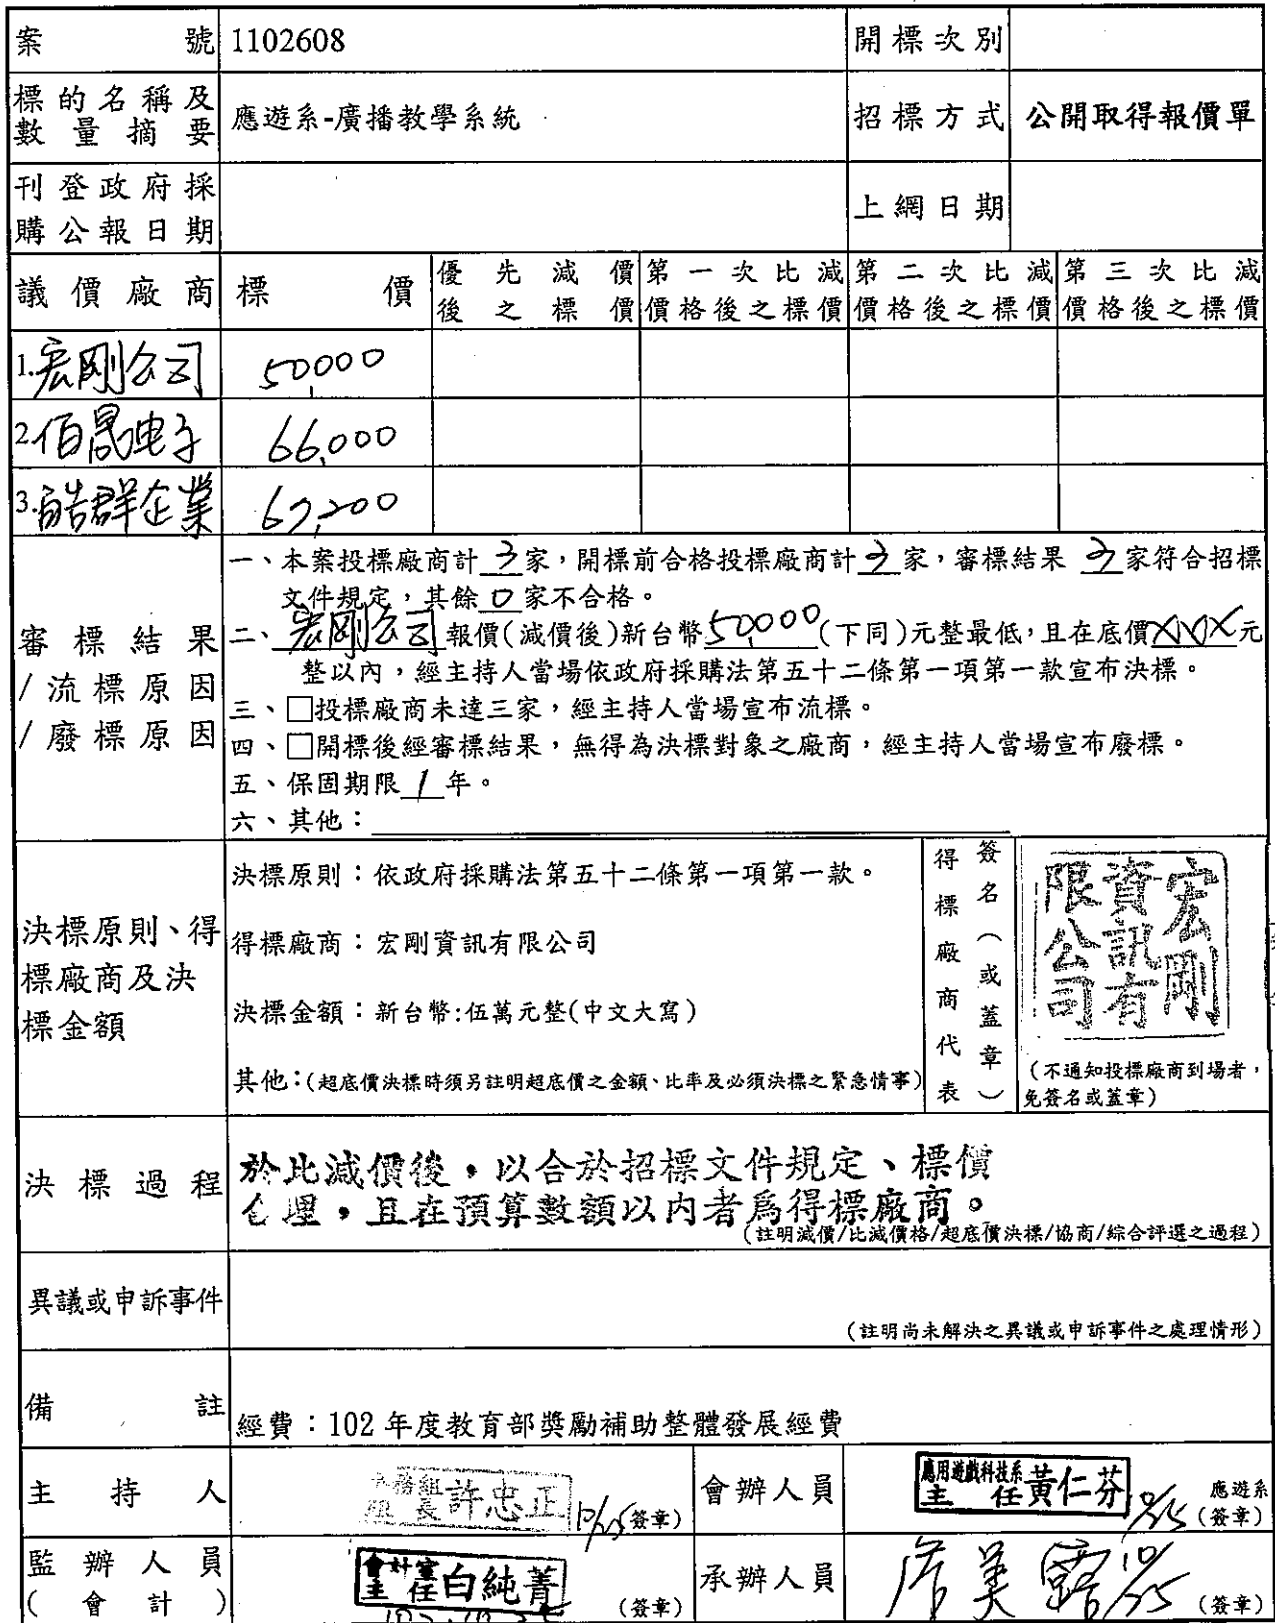 案號 1102608 開標次別
標的名稱及數量摘要 應遊系-廣播教學系統 招標方式 公開取得報價單
刊登政府採購公報日期 上網日期
議價廠商 標價 優先減價後之標價 第一次比減價格後之標價 第二次比減價格後之標價 第三次比減價格後之標價
1.宏剛公司 50,000
2.佰晟电子 66,000
3.皓群企業 67,200
審標結果/流標原因/廢標原因
一、本案投標廠商計3家，開標前合格投標廠商計3家，審標結果 3家符合招標
文件規定，其餘0家不合格。
二、宏剛公司報價(減價後)新台幣50,000(下同)元整最低，且在底價XXX元
整以內，經主持人當場依政府採購法第五十二條第一項第一款宣布決標。
三、□投標廠商未達三家，經主持人當場宣布流標。
四、□開標後經審標結果，無得為決標對象之廠商，經主持人當場宣布廢標。
五、保固期限1年。
六、其他：
決標原則、得標廠商及決標金額
決標原則：依政府採購法第五十二條第一項第一款。
得標廠商：宏剛資訊有限公司
決標金額：新台幣:伍萬元整(中文大寫)
其他：(超底價決標時須另註明超底價之金額、比率及必須決標之緊急情事)
得標廠商代表
簽名（或蓋章）
宏剛資訊有限公司
(不通知投標廠商到場者，
免簽名或蓋章)
決標過程
於比減價後，以合於招標文件規定、標價
合理，且在預算數額以內者為得標廠商。
(註明減價/比減價格/超底價決標/協商/綜合評選之過程)
異議或申訴事件
(註明尚未解決之異議或申訴事件之處理情形)
備註
經費：102年度教育部獎勵補助整體發展經費
主持人 組長 許忠正 10/25 (簽章) 會辦人員 應用遊戲科技系主任 黃仁芬 10/25 應遊系 (簽章)
監辦人員(會計) 會計室主任 白純菁 102.10.25 (簽章) 承辦人員 美 10/25 (簽章)